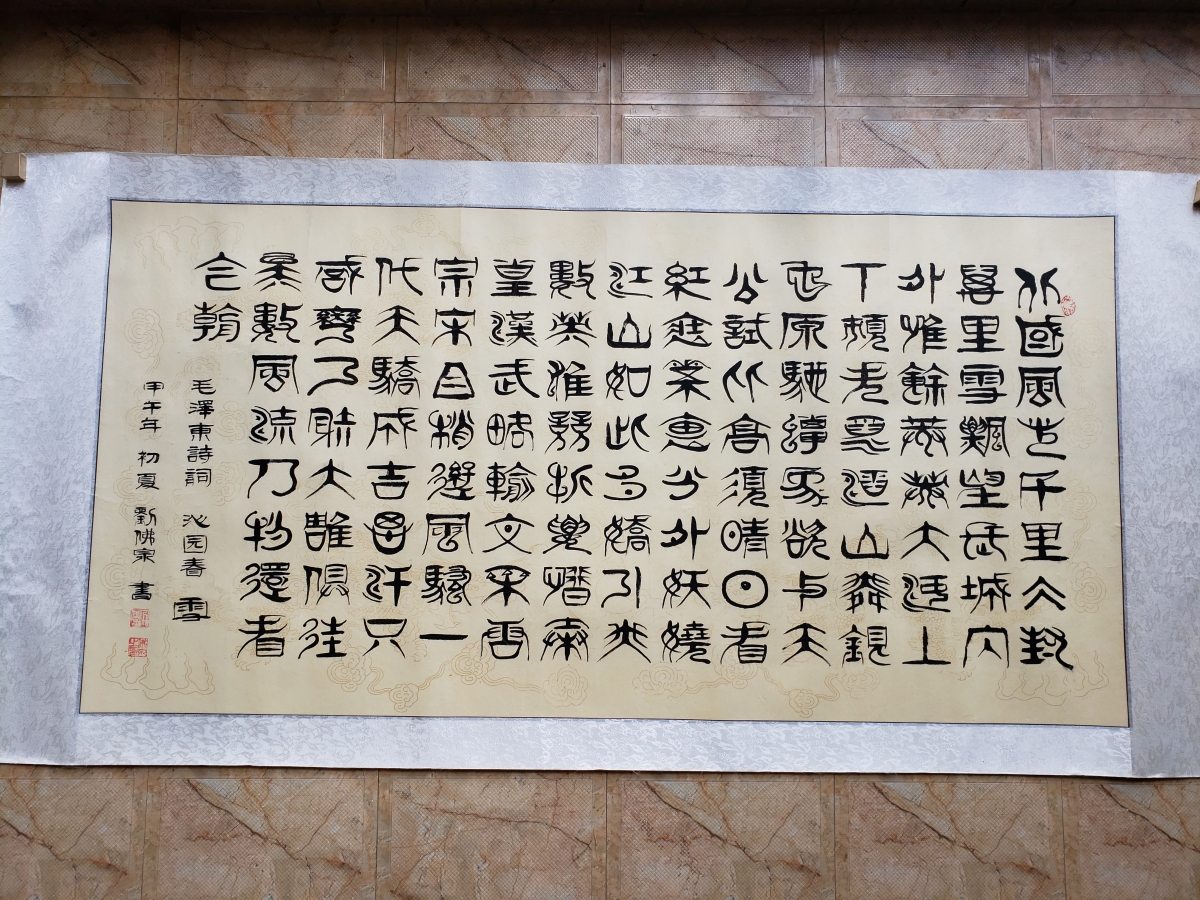 北國風光千里冰封
萬里雪飄望長城內
外惟餘莽莽大河上
下頓失滔滔山舞銀
蛇原馳蠟象欲與天
公試比高須晴日看
紅裝素裹分外妖嬈
江山如此多嬌引無
數英雄競折腰惜秦
皇漢武略輸文采唐
宗宋且稍遜風騷一
代天驕成吉思汗只
識彎弓射大雕俱往
矣數風流人物還看
今朝
毛澤東詩詞 沁园春 雪
甲午年 初夏 劉佛宗 書